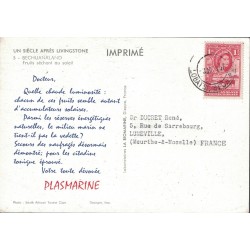 UN SIÈCLE APRÈS LIVINGSTONE
IMPRIMÉ
5 - BECHUANALAND
Fruits séchant au soleil
Docteur,
Quelle chaude luminosité :
chacun de ces fruits semble autant
d'accumulateurs solaires.
Parmi les réserves énergétiques
naturelles, le milieu marin ne
tient-il pas là du lointain ?
Secours des naufragés désormais
démontré, pour les citadins
tonique éprouvé.
Votre toute dévouée,
PLASMARINE
LOBAT
Dr DUCRET René,
0, Rue de Sarrebourg,
LUNEVILLE,
(Meurthe-&-Moselle) FRANCE